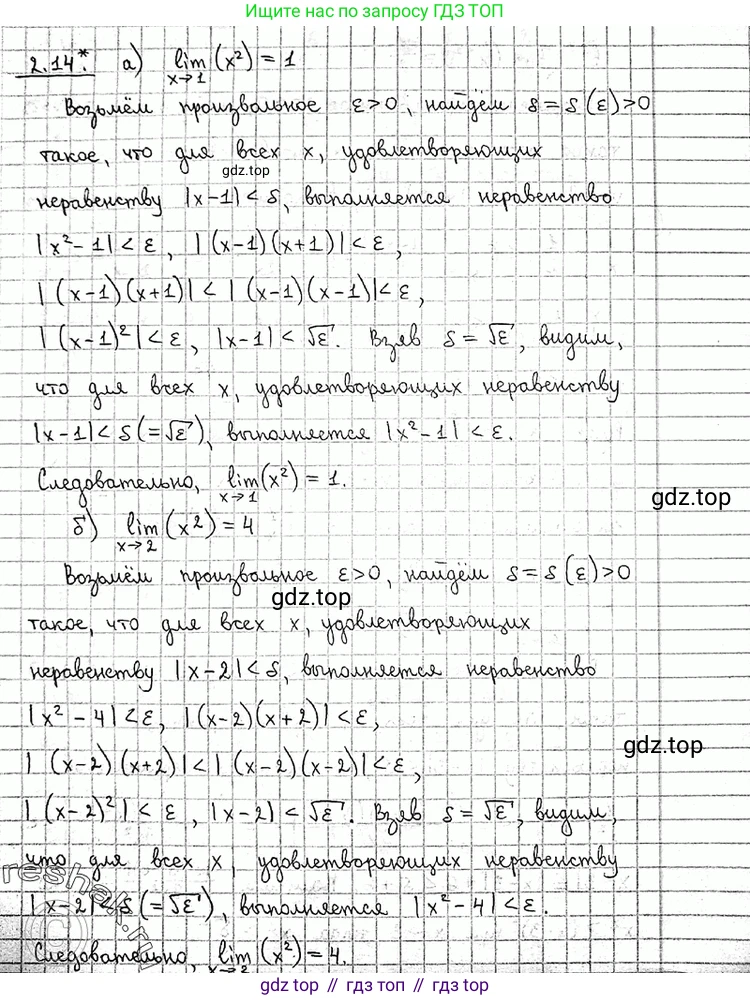 Ищите нас по запросу ГДЗ ТОП
2.14*. а) lim (x²) = 1
x→1
Возьмём произвольное ε>0, найдём δ=δ(ε)>0
такое, что для всех x, удовлетворяющих
gdz.top
неравенству |x-1|<δ, выполняется неравенство
|x²-1|<ε, |(x-1)(x+1)|<ε,
|(x-1)(x+1)|<|(x-1)(x-1)|<ε,
|(x-1)²|<ε, |x-1|<√ε. Взяв δ=√ε, видим,
что для всех x, удовлетворяющих неравенству
|x-1|<δ(=√ε), выполняется |x²-1|<ε.
Следовательно, lim (x²) = 1.
x→1
gdz.top
б) lim (x²) = 4
x→2
Возьмём произвольное ε>0, найдём δ=δ(ε)>0
gdz.top
такое, что для всех x, удовлетворяющих
неравенству |x-2|<δ, выполняется неравенство
|x²-4|<ε, |(x-2)(x+2)|<ε,
gdz.top
|(x-2)(x+2)|<|(x-2)(x-2)|<ε,
|(x-2)²|<ε, |x-2|<√ε. Взяв δ=√ε, видим,
что для всех x, удовлетворяющих неравенству
|x-2|<δ(=√ε), выполняется |x²-4|<ε.
Следовательно, lim (x²) = 4.
x→2
gdz.top // гдз.топ // gdz.top